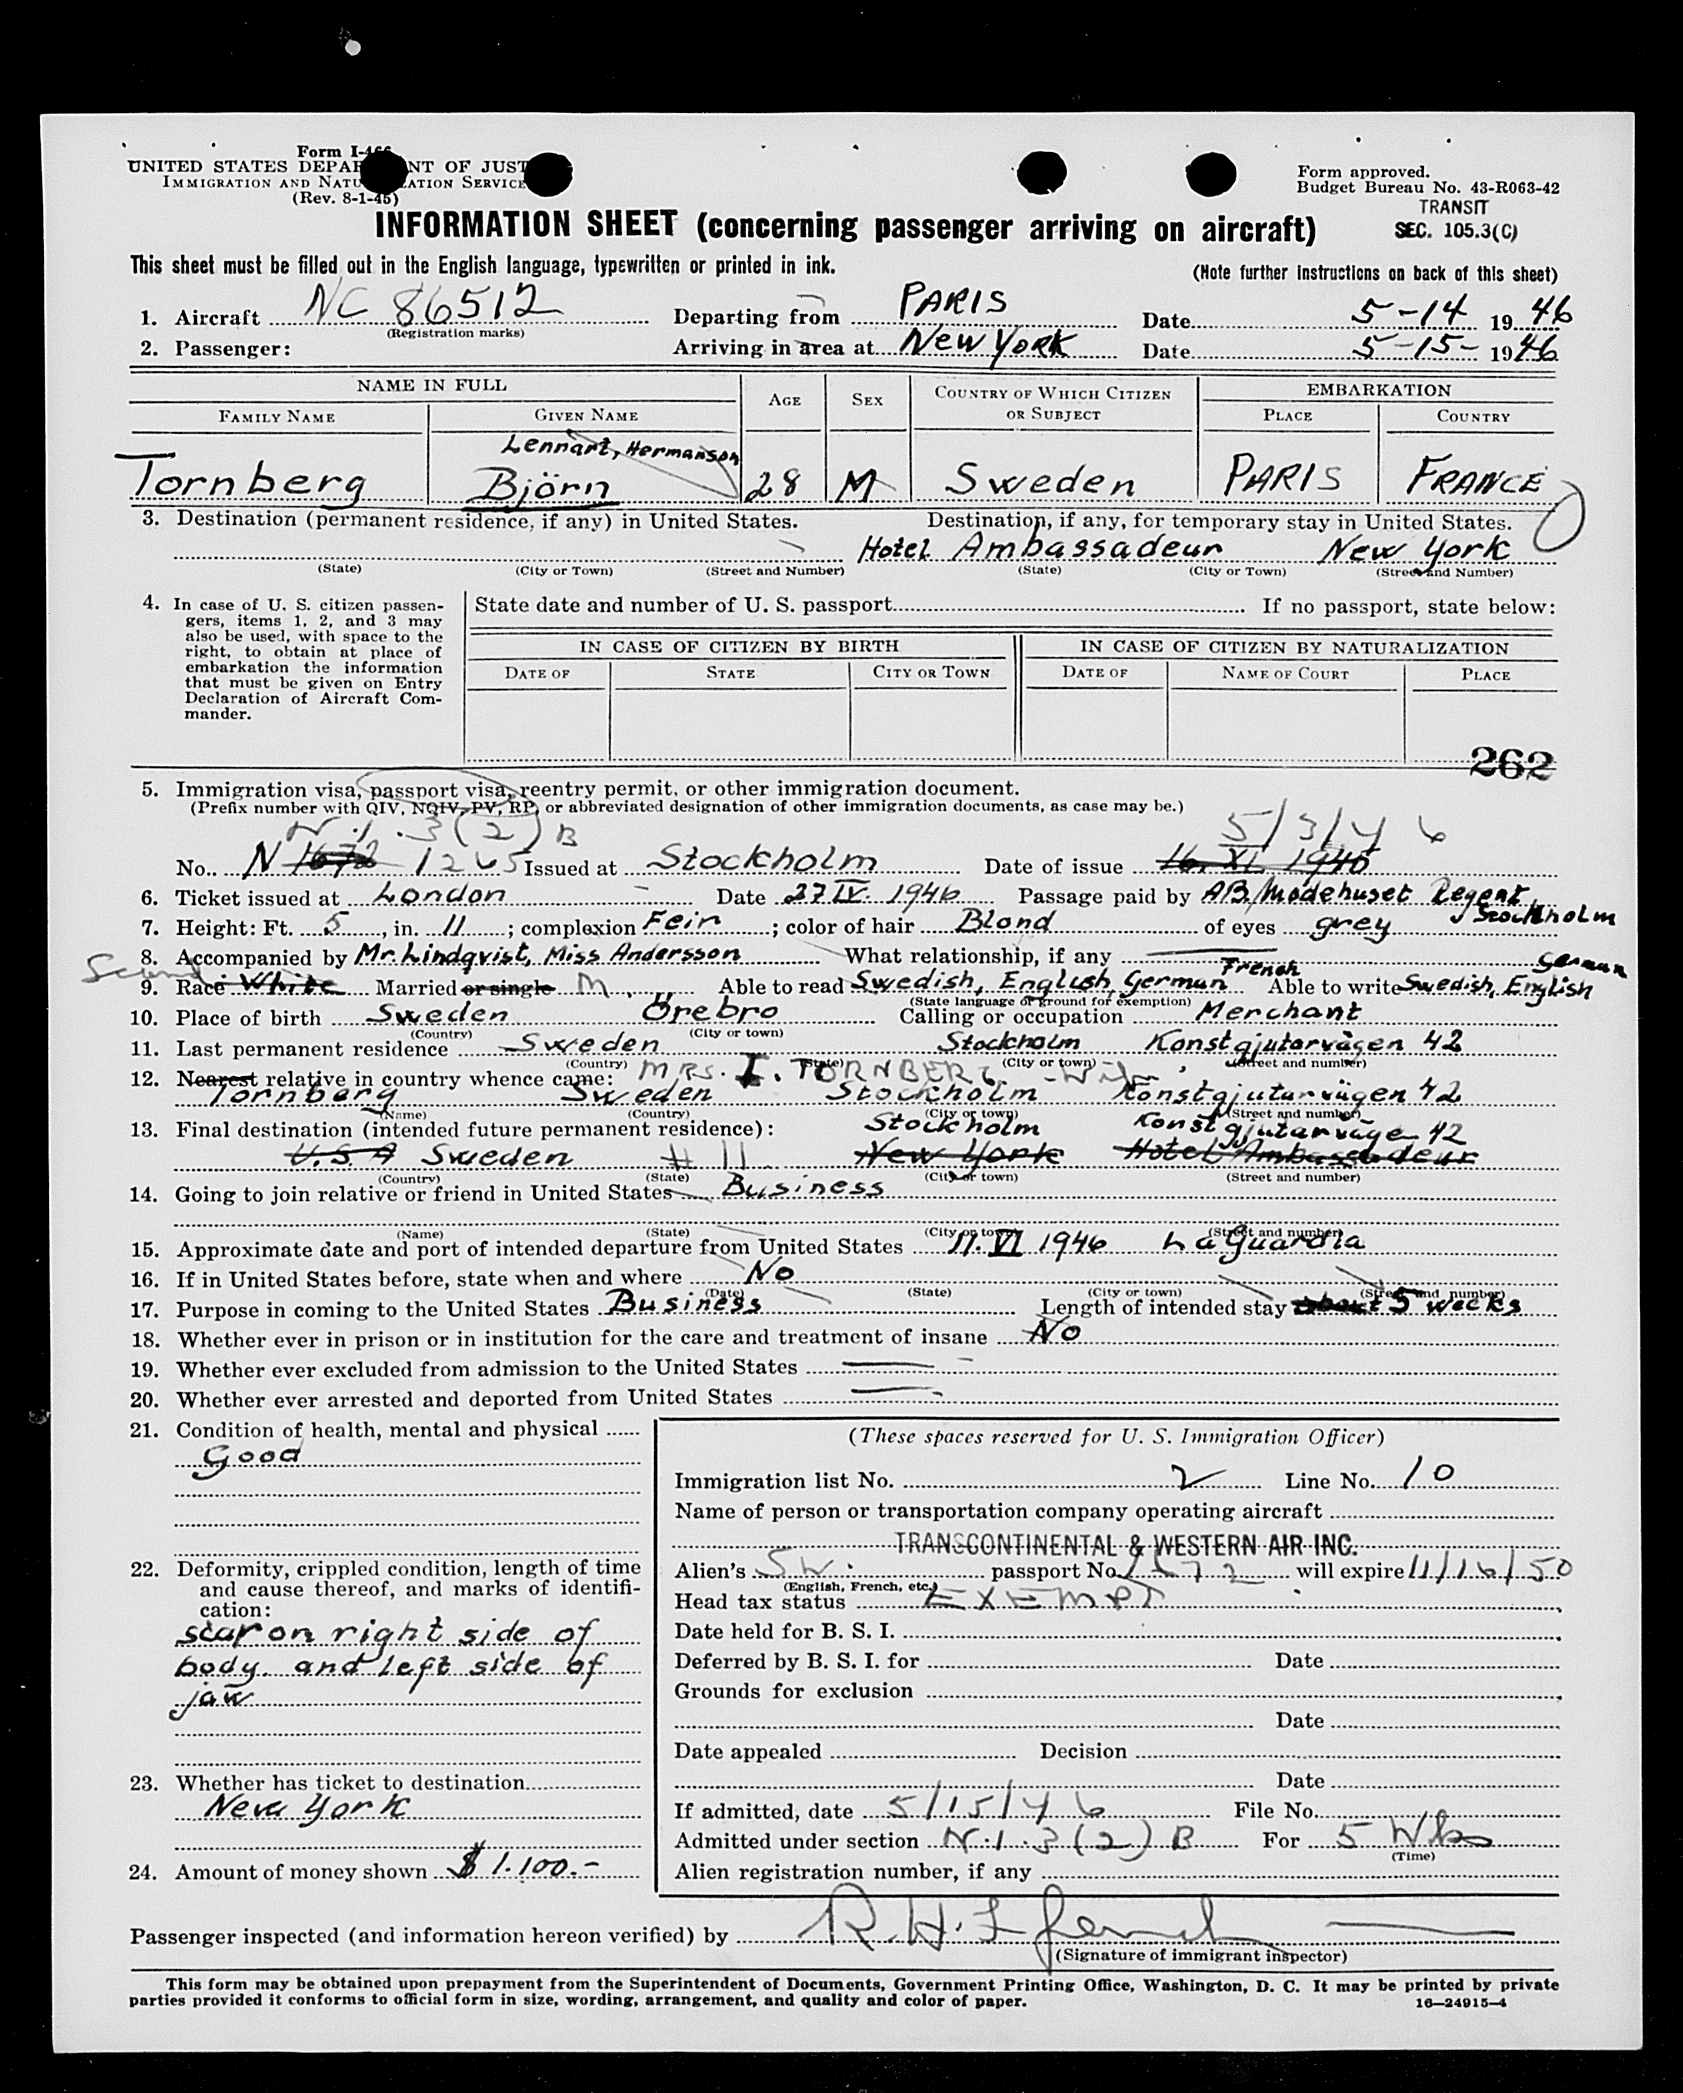 Form I-466
UNITED STATES DEPARTMENT OF JUSTICE
IMMIGRATION AND NATURALIZATION SERVICE
(Rev. 8-1-45)
Form approved.
Budget Bureau No. 43-R063-42
TRANSIT
SEC. 105.3(C)
INFORMATION SHEET (concerning passenger arriving on aircraft)
This sheet must be filled out in the English language, typewritten or printed in ink.
(Note further instructions on back of this sheet)
1. Aircraft NC 86512 Departing from PARIS Date 5-14 1946
(Registration marks)
2. Passenger: Arriving in area at New York Date 5-15- 1946
NAME IN FULL AGE SEX COUNTRY OF WHICH CITIZEN OR SUBJECT EMBARKATION
FAMILY NAME GIVEN NAME PLACE COUNTRY
Lennart, Hermanson
Tornberg Björn 28 M Sweden PARIS FRANCE
3. Destination (permanent residence, if any) in United States. Destination, if any, for temporary stay in United States.
Hotel Ambassadeur New York
(State) (City or Town) (Street and Number) (State) (City or Town) (Street and Number)
4. In case of U. S. citizen passen-
gers, items 1, 2, and 3 may
also be used, with space to the
right, to obtain at place of
embarkation the information
that must be given on Entry
Declaration of Aircraft Com-
mander.
State date and number of U. S. passport If no passport, state below:
IN CASE OF CITIZEN BY BIRTH IN CASE OF CITIZEN BY NATURALIZATION
DATE OF STATE CITY OR TOWN DATE OF NAME OF COURT PLACE
262
5. Immigration visa, passport visa, reentry permit, or other immigration document.
(Prefix number with QIV, NQIV, PV, RP, or abbreviated designation of other immigration documents, as case may be.)
N.I. 3(2) B 5/3/46
No. N 1672 1265 Issued at Stockholm Date of issue 16. XI. 1945
6. Ticket issued at London Date 27 IV. 1946 Passage paid by AB. Modehuset Regent, Stockholm
7. Height: Ft. 5, in. 11; complexion Feir; color of hair Blond of eyes grey
8. Accompanied by Mr. Lindqvist, Miss Andersson What relationship, if any
French German
9. Race White Married or single M. Able to read Swedish, English, German Able to write Swedish, English
(State language or ground for exemption)
10. Place of birth Sweden Örebro Calling or occupation Merchant
(Country) (City or town)
11. Last permanent residence Sweden Stockholm Konstgjutarvägen 42
(Country) (State) (City or town) (Street and number)
12. Nearest relative in country whence came: MRS. I. TORNBERG - Wife
Tornberg Sweden Stockholm Konstgjutarvägen 42
(Name) (Country) (City or town) (Street and number)
13. Final destination (intended future permanent residence): Stockholm Konstgjutarväge 42
U.S.A Sweden # 11 New York Hotel Ambassadeur
(Country) (State) (City or town) (Street and number)
14. Going to join relative or friend in United States Business
(Name) (State) (City or town) (Street and number)
15. Approximate date and port of intended departure from United States 17. VI 1946 LaGuardia
16. If in United States before, state when and where No
(Date) (State) (City or town) (Street and number)
17. Purpose in coming to the United States Business Length of intended stay about 5 weeks
18. Whether ever in prison or in institution for the care and treatment of insane No
19. Whether ever excluded from admission to the United States
20. Whether ever arrested and deported from United States
21. Condition of health, mental and physical
Good
22. Deformity, crippled condition, length of time
and cause thereof, and marks of identifi-
cation:
scar on right side of
body and left side of
jaw
23. Whether has ticket to destination
New York
24. Amount of money shown $ 1.100.-
(These spaces reserved for U. S. Immigration Officer)
Immigration list No. 2 Line No. 10
Name of person or transportation company operating aircraft
TRANSCONTINENTAL & WESTERN AIR INC.
Alien's SW. passport No. 1672 will expire 11/16/50
(English, French, etc.)
Head tax status EXEMPT
Date held for B. S. I.
Deferred by B. S. I. for Date
Grounds for exclusion
Date
Date appealed Decision
Date
If admitted, date 5/15/46 File No.
Admitted under section N.I. 3(2) B For 5 Wks
(Time)
Alien registration number, if any
Passenger inspected (and information hereon verified) by R. H.
(Signature of immigrant inspector)
This form may be obtained upon prepayment from the Superintendent of Documents, Government Printing Office, Washington, D. C. It may be printed by private
parties provided it conforms to official form in size, wording, arrangement, and quality and color of paper.
16—24915-4